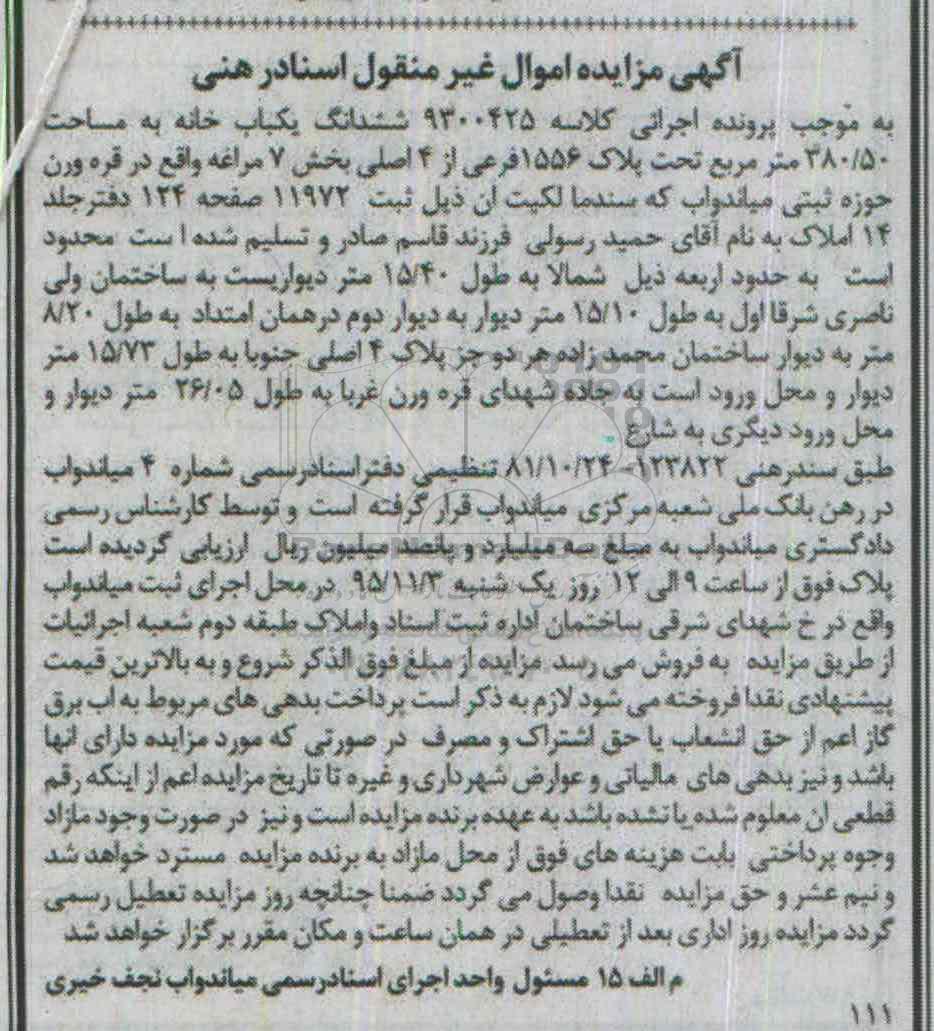 آگهی مزایده اموال غیر منقول اسنادر هنی
به موجب پرونده اجرائی کلاسه ۹۳۰۰۴۲۵ ششدانگ یکباب خانه به مساحت
۳۸۰/۵۰ متر مربع تحت پلاک ۱۵۵۶فرعی از ۴ اصلی بخش ۷ مراغه واقع در قره ورن
حوزه ثبتی میاندواب که سندما لکیت ان ذیل ثبت ۱۱۹۷۲ صفحه ۱۲۴ دفترجلد
۱۴ املاک به نام آقای حمید رسولی فرزند قاسم صادر و تسلیم شده ا ست محدود
است به حدود اربعه ذیل شمالا به طول ۱۵/۴۰ متر دیواریست به ساختمان ولی
ناصری شرقا اول به طول ۱۵/۱۰ متر دیوار به دیوار دوم درهمان امتداد به طول ۸/۲۰
متر به دیوار ساختمان محمد زاده هر دو جز پلاک ۴ اصلی جنوبا به طول ۱۵/۷۳ متر
دیوار و محل ورود است به جاده شهدای قره ورن غربا به طول ۲۶/۰۵ متر دیوار و
محل ورود دیگری به شارع
طبق سندرهنی ۱۲۳۸۲۲-۸۱/۱۰/۲۴ تنظیمی دفتراسنادرسمی شماره ۴ میاندواب
در رهن بانک ملی شعبه مرکزی میاندواب قرار گرفته است و توسط کارشناس رسمی
دادگستری میاندواب به مبلغ سه میلیارد و پانصد میلیون ریال ارزیابی گردیده است
پلاک فوق از ساعت ۹ الی ۱۲ روز یک شنبه ۹۵/۱۱/۳ در محل اجرای ثبت میاندواب
واقع در خ شهدای شرقی ساختمان اداره ثبت اسناد واملاک طبقه دوم شعبه اجرائیات
از طریق مزایده به فروش می رسد مزایده از مبلغ فوق الذکر شروع و به بالاترین قیمت
پیشنهادی نقدا فروخته می شود لازم به ذکر است پرداخت بدهی های مربوط به اب برق
گاز اعم از حق انشعاب یا حق اشتراک و مصرف در صورتی که مورد مزایده دارای انها
باشد و نیز بدهی های مالیاتی و عوارض شهرداری و غیره تا تاریخ مزایده اعم از اینکه رقم
قطعی ان معلوم شده یا نشده باشد به عهده برنده مزایده است و نیز در صورت وجود مازاد
وجوه پرداختی بابت هزینه های فوق از محل مازاد به برنده مزایده مسترد خواهد شد
و نیم عشر و حق مزایده نقدا وصول می گردد ضمنا چنانچه روز مزایده تعطیل رسمی
گردد مزایده روز اداری بعد از تعطیلی در همان ساعت و مکان مقرر برگزار خواهد شد
م الف ۱۵ مسئول واحد اجرای اسنادرسمی میاندواب نجف خیری
۱۱۱